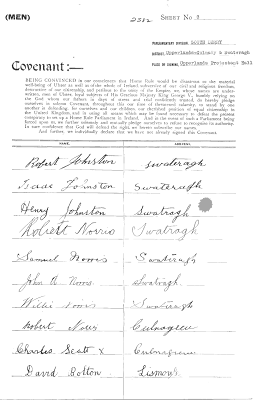 (MEN)
2552 SHEET No. 8
PARLIAMENTARY DIVISION SOUTH DERRY
DISTRICT Upperlands Culnady & Swatragh
PLACE OF SIGNING Upperlands Protestant Hall
Covenant:—
BEING CONVINCED in our consciences that Home Rule would be disastrous to the material
well-being of Ulster as well as of the whole of Ireland, subversive of our civil and religious freedom,
destructive of our citizenship, and perilous to the unity of the Empire, we, whose names are under-
written, men of Ulster, loyal subjects of His Gracious Majesty King George V., humbly relying on
the God whom our fathers in days of stress and trial confidently trusted, do hereby pledge
ourselves in solemn Covenant, throughout this our time of threatened calamity, to stand by one
another in defending, for ourselves and our children, our cherished position of equal citizenship in
the United Kingdom, and in using all means which may be found necessary to defeat the present
conspiracy to set up a Home Rule Parliament in Ireland. And in the event of such a Parliament being
forced upon us, we further solemnly and mutually pledge ourselves to refuse to recognise its authority.
In sure confidence that God will defend the right, we hereto subscribe our names.
And further, we individually declare that we have not already signed this Covenant.
NAME. ADDRESS.
Robert Johnston Swateragh
Isaac Johnston Swateragh
Henry Johnston Swatragh
Robert Norris Swatragh
Samuel Norris Swatragh
John Norris Swatragh
Willie Norris Swatragh
Robert Culnagrew
Charles Scott x Culnagrew
David Bolton Lismoyle